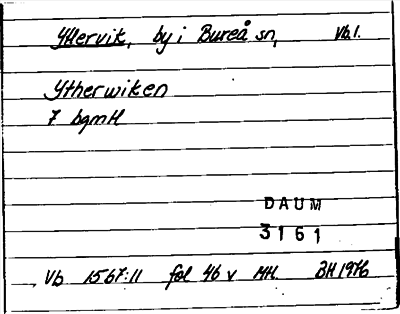 Yttervik, by i Bureå sn, Vb.l.
Ytherwiken
7 bgmH
DAUM
3161
Vb 1567:11 fol 46 v HH. BH 1976